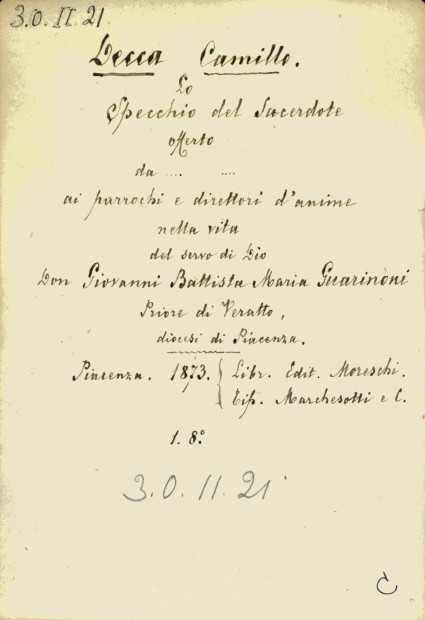 3.O.II.21
Decca Camillo.
Lo
Specchio del Sacerdote
offerto
da .... ....
ai parrochi e direttori d'anime
nella vita
del servo di Dio
Don Giovanni Battista Maria Guarinoni
Priore di Veratto,
diocesi di Piacenza.
Piacenza. 1873. { Libr. Edit. Moreschi.
Tip. Marchesotti e C.
1. 8.º
3.O.II.21
C